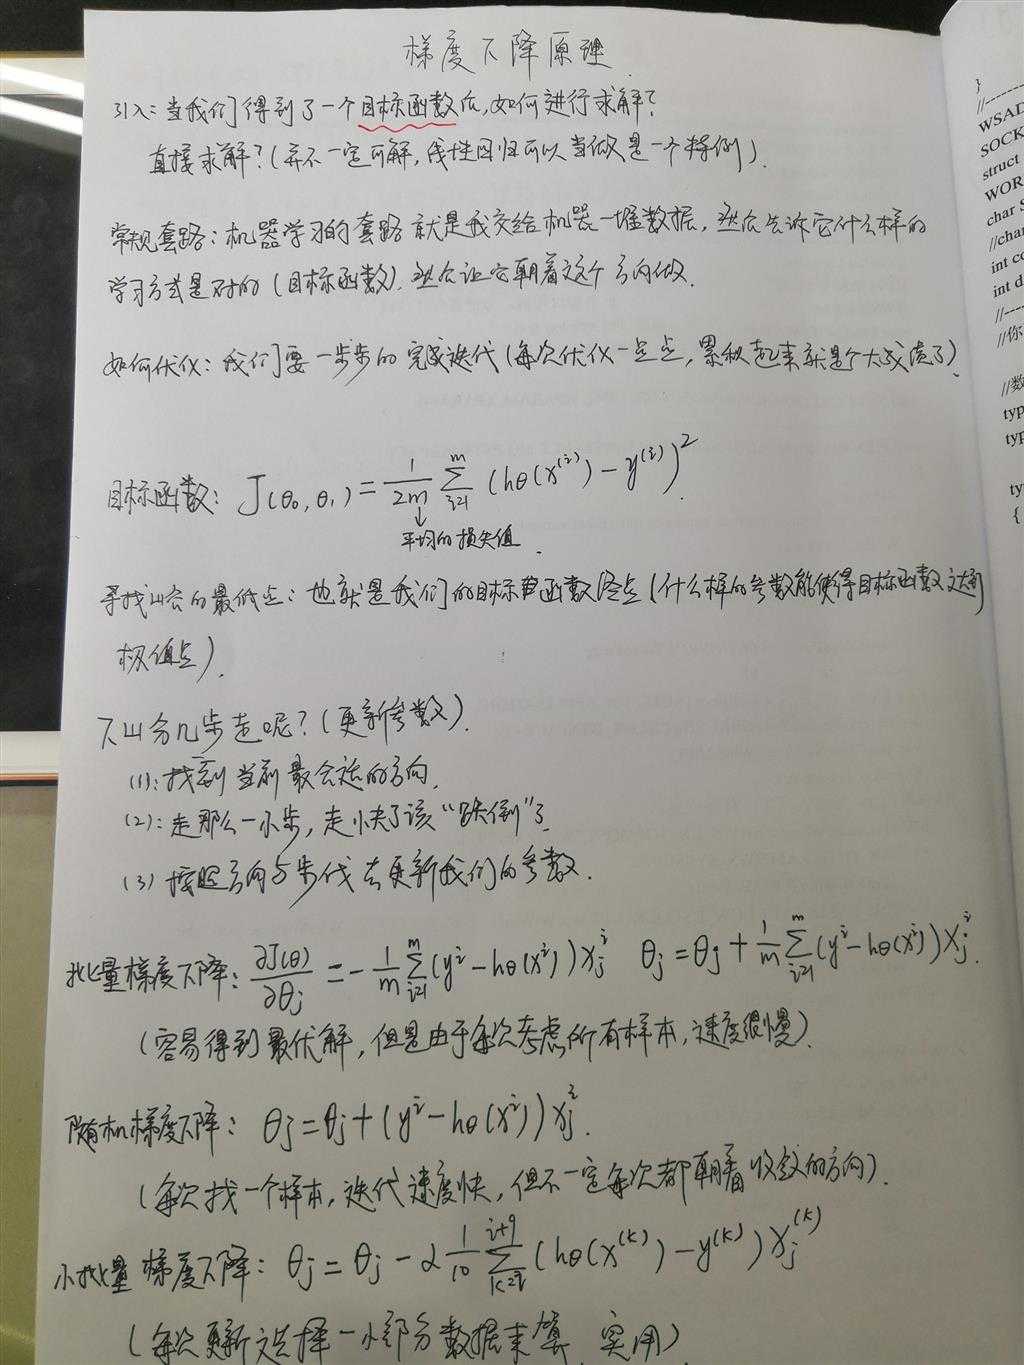 梯度下降原理
引入：当我们得到了一个目标函数后，如何进行求解？
直接求解？（并不一定可解，线性回归可以当做是一个特例）.
常规套路：机器学习的套路就是我交给机器一堆数据，然后告诉它什么样的
学习方式是对的（目标函数），然后让它朝着这个方向做.
如何优化：我们要一步步的完成迭代（每次优化一点点，累积起来就是个大成绩了）.
目标函数：J(θ₀,θ₁) = 1/2m Σ_{i=1}^{m} (hθ(x^{(i)}) - y^{(i)})².
平均的损失值.
寻找山谷的最低点：也就是我们的目标函数终点（什么样的参数能使得目标函数达到
极值点）.
下山分几步走呢？（更新参数）.
(1)：找到当前最合适的方向.
(2)：走那么一小步，走快了该“跌倒”了.
(3) 按照方向与步伐去更新我们的参数.
批量梯度下降：∂J(θ)/∂θj = - 1/m Σ_{i=1}^{m} (y^i - hθ(x^i)) x_j^i  θj = θj + 1/m Σ_{i=1}^{m} (y^i - hθ(x^i)) x_j^i.
（容易得到最优解，但是由于每次考虑所有样本，速度很慢）.
随机梯度下降：θj = θj + (y^i - hθ(x^i)) x_j^i.
（每次找一个样本，迭代速度快，但不一定每次都朝着收敛的方向）.
小批量梯度下降：θj = θj - α 1/10 Σ_{k=i}^{i+9} (hθ(x^{(k)}) - y^{(k)}) x_j^{(k)}
（每次更新选择一小部分数据来算，实用）
}
//------
WSAD
SOCK
struct
WOR
char S
//char
int co
int d
//----
//你
//数
typ
typ
ty
{